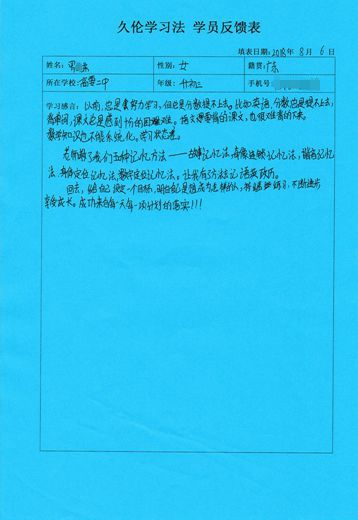 久伦学习法 学员反馈表
填表日期:2018年 8月 6日
姓名: 性别: 女 籍贯: 广东
所在学校: 高要二中 年级: 升初三 手机号:
学习感言: 以前,总是重努力学习,但总是分数提不上去。比如英语,分数总是提不上去,
背单词,课文总是感到十分的困难。语文需要背的课文,也很难背的下来。
数学知识也不能系统化。学习状态差。
老师教了我们五种记忆方法——故事记忆法,奇像连锁记忆法,谐音记忆
法,身体定位记忆法,数字定位记忆法。让我有方法记语英政历。
回去,给自己设定一个目标,明白自己是想成为怎样的人,将练习,不断进步
享受成长。成功来自每一天每一项计划的落实!!!